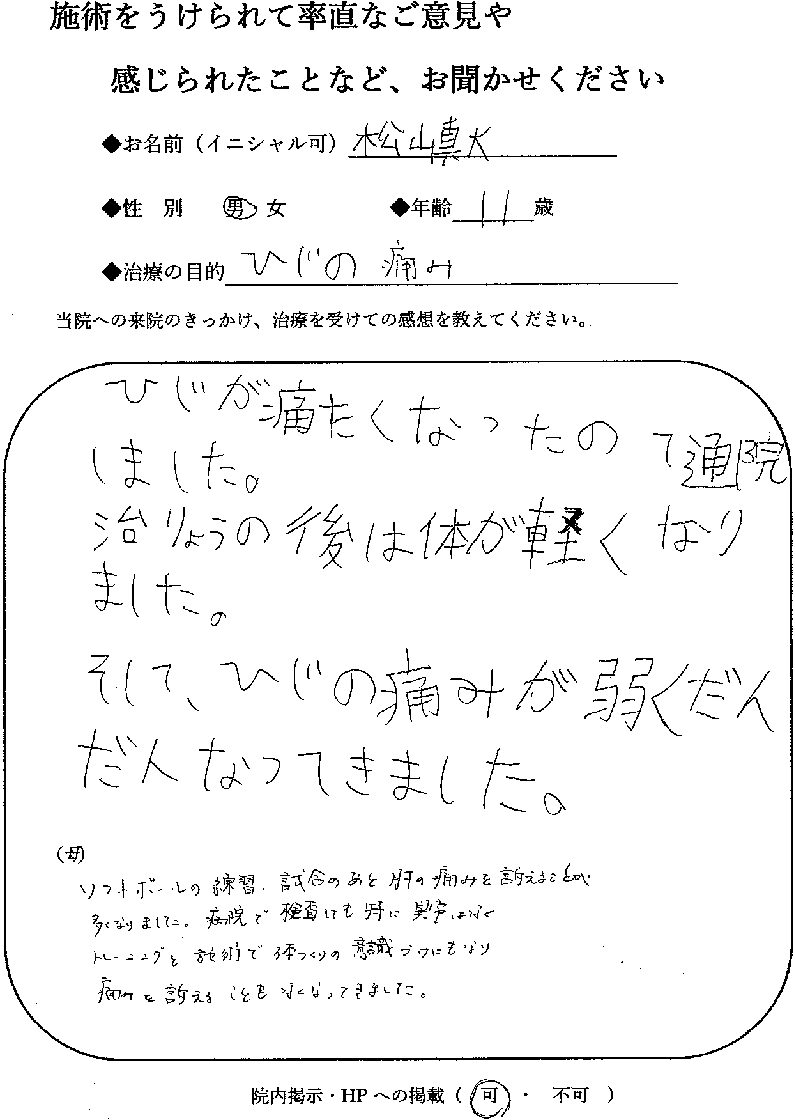 施術をうけられて率直なご意見や
感じられたことなど、お聞かせください
◆お名前（イニシャル可） 松山真大
◆性　別　男　女　◆年齢 11 歳
◆治療の目的 ひじの 痛み
当院への来院のきっかけ、治療を受けての感想を教えてください。
ひじが痛たくなったので通院
しました。
治りょうの後は体が軽くなり
ました。
そして、ひじの痛みが弱くだん
だんなってきました。
(母)
ソフトボールの練習、試合のあと肘の痛みを訴えることが
多くなりました。病院で検査しても特に異常はなく
トレーニングと施術で体つくりの意識づけにもなり
痛みを訴えることもなくなってきました。
院内掲示・HP への掲載（ 可 ・ 不可 ）